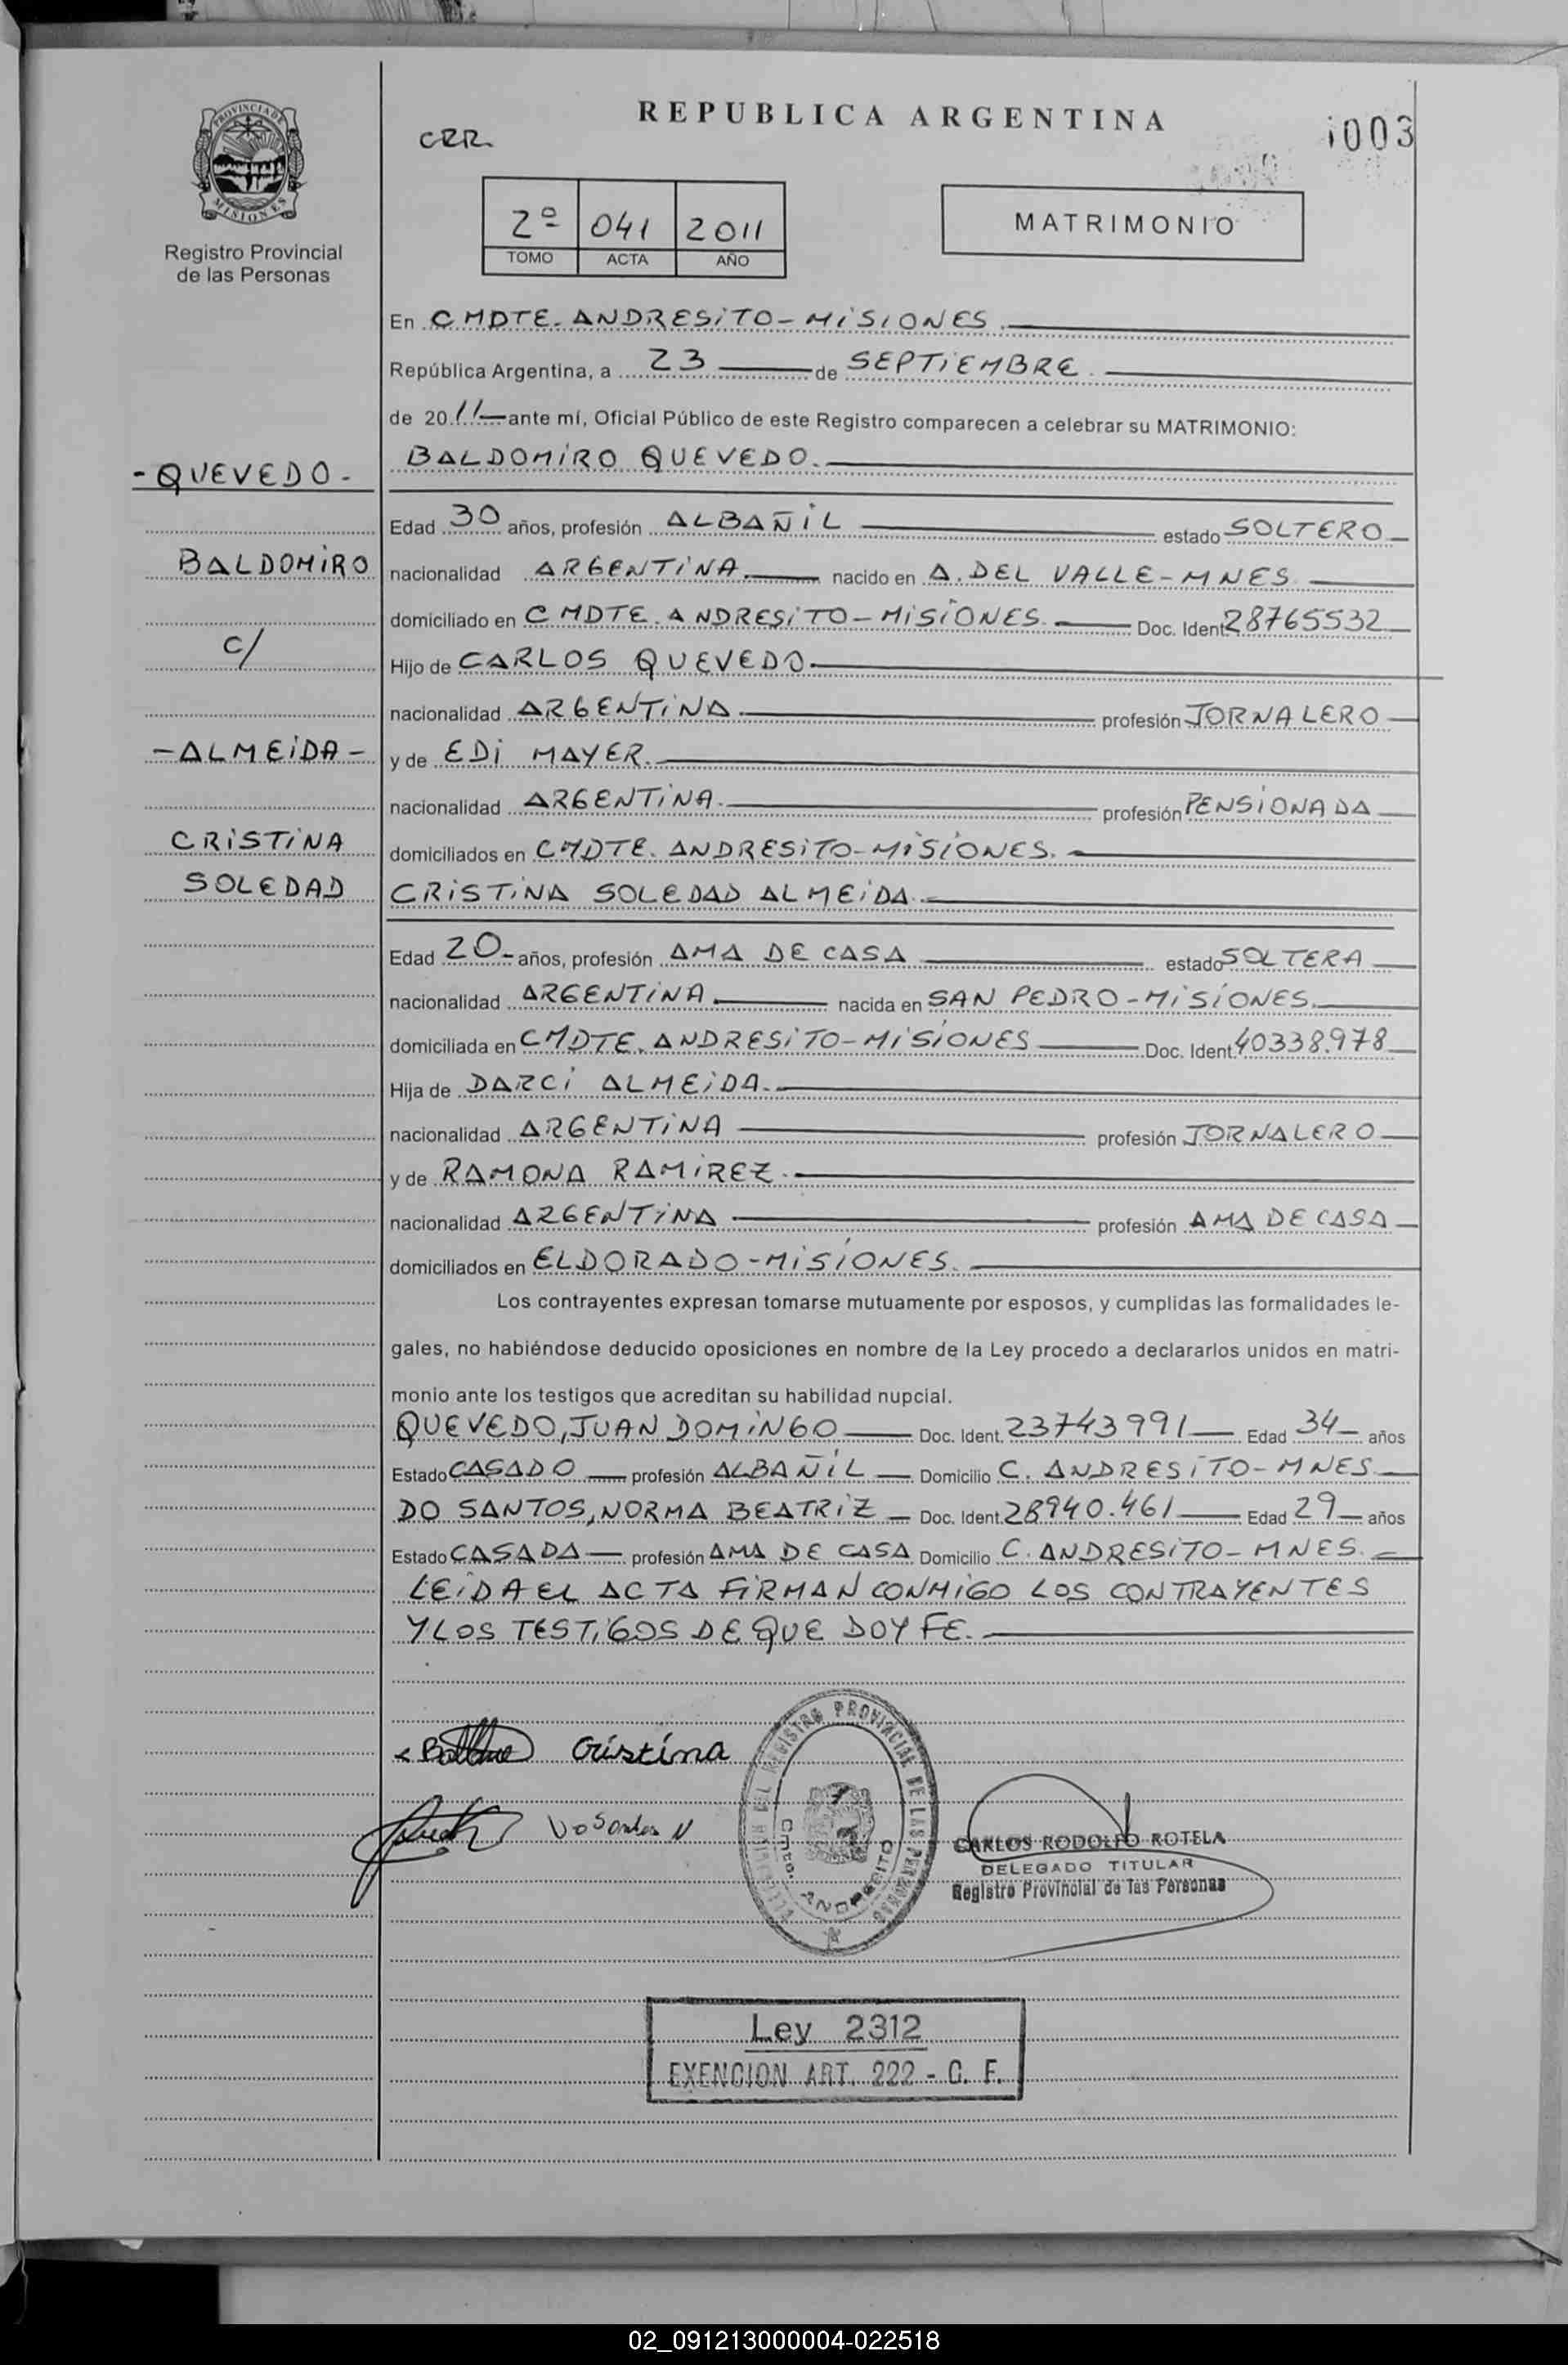 REPUBLICA ARGENTINA
CRR.
1003
PROVINCIA DE
MISIONES
Registro Provincial
de las Personas
2º 041 2011
TOMO ACTA AÑO
MATRIMONIO
En CMDTE. ANDRESITO - MISIONES.
República Argentina, a 23 de SEPTIEMBRE.
de 2011 ante mí, Oficial Público de este Registro comparecen a celebrar su MATRIMONIO:
- QUEVEDO -
BALDOMIRO QUEVEDO.
Edad 30 años, profesión ALBAÑIL estado SOLTERO
BALDOMIRO
nacionalidad ARGENTINA. nacido en A. DEL VALLE - MNES
domiciliado en CMDTE. ANDRESITO - MISIONES. Doc. Ident. 28765532
C/
Hijo de CARLOS QUEVEDO.
nacionalidad ARGENTINA profesión JORNALERO
- ALMEIDA -
y de EDI MAYER.
nacionalidad ARGENTINA. profesión PENSIONADA
CRISTINA
domiciliados en CMDTE. ANDRESITO - MISIONES.
SOLEDAD
CRISTINA SOLEDAD ALMEIDA.
Edad 20 años, profesión AMA DE CASA estado SOLTERA
nacionalidad ARGENTINA. nacida en SAN PEDRO - MISIONES.
domiciliada en CMDTE. ANDRESITO - MISIONES Doc. Ident. 40338.978
Hija de DARCI ALMEIDA.
nacionalidad ARGENTINA profesión JORNALERO
y de RAMONA RAMIREZ.
nacionalidad ARGENTINA profesión AMA DE CASA
domiciliados en ELDORADO - MISIONES.
Los contrayentes expresan tomarse mutuamente por esposos, y cumplidas las formalidades le-
gales, no habiéndose deducido oposiciones en nombre de la Ley procedo a declararlos unidos en matri-
monio ante los testigos que acreditan su habilidad nupcial.
QUEVEDO, JUAN DOMINGO Doc. Ident. 23743991 Edad 34 años
Estado CASADO profesión ALBAÑIL Domicilio C. ANDRESITO - MNES
DO SANTOS, NORMA BEATRIZ Doc. Ident. 28940.461 Edad 29 años
Estado CASADA profesión AMA DE CASA Domicilio C. ANDRESITO - MNES.
LEIDA EL ACTA FIRMAN CONMIGO LOS CONTRAYENTES
Y LOS TESTIGOS DE QUE DOY FE.
Cristina
REGISTRO PROVINCIAL DE LAS PERSONAS
Cmte. ANDRESITO
CARLOS RODOLFO ROTELA
DELEGADO TITULAR
Registro Provincial de las Personas
Ley 2312
EXENCION ART. 222 - C. F.
02_091213000004-022518